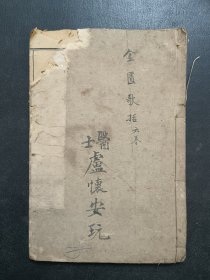 金匱歌括六卷
醫士盧懷安玩